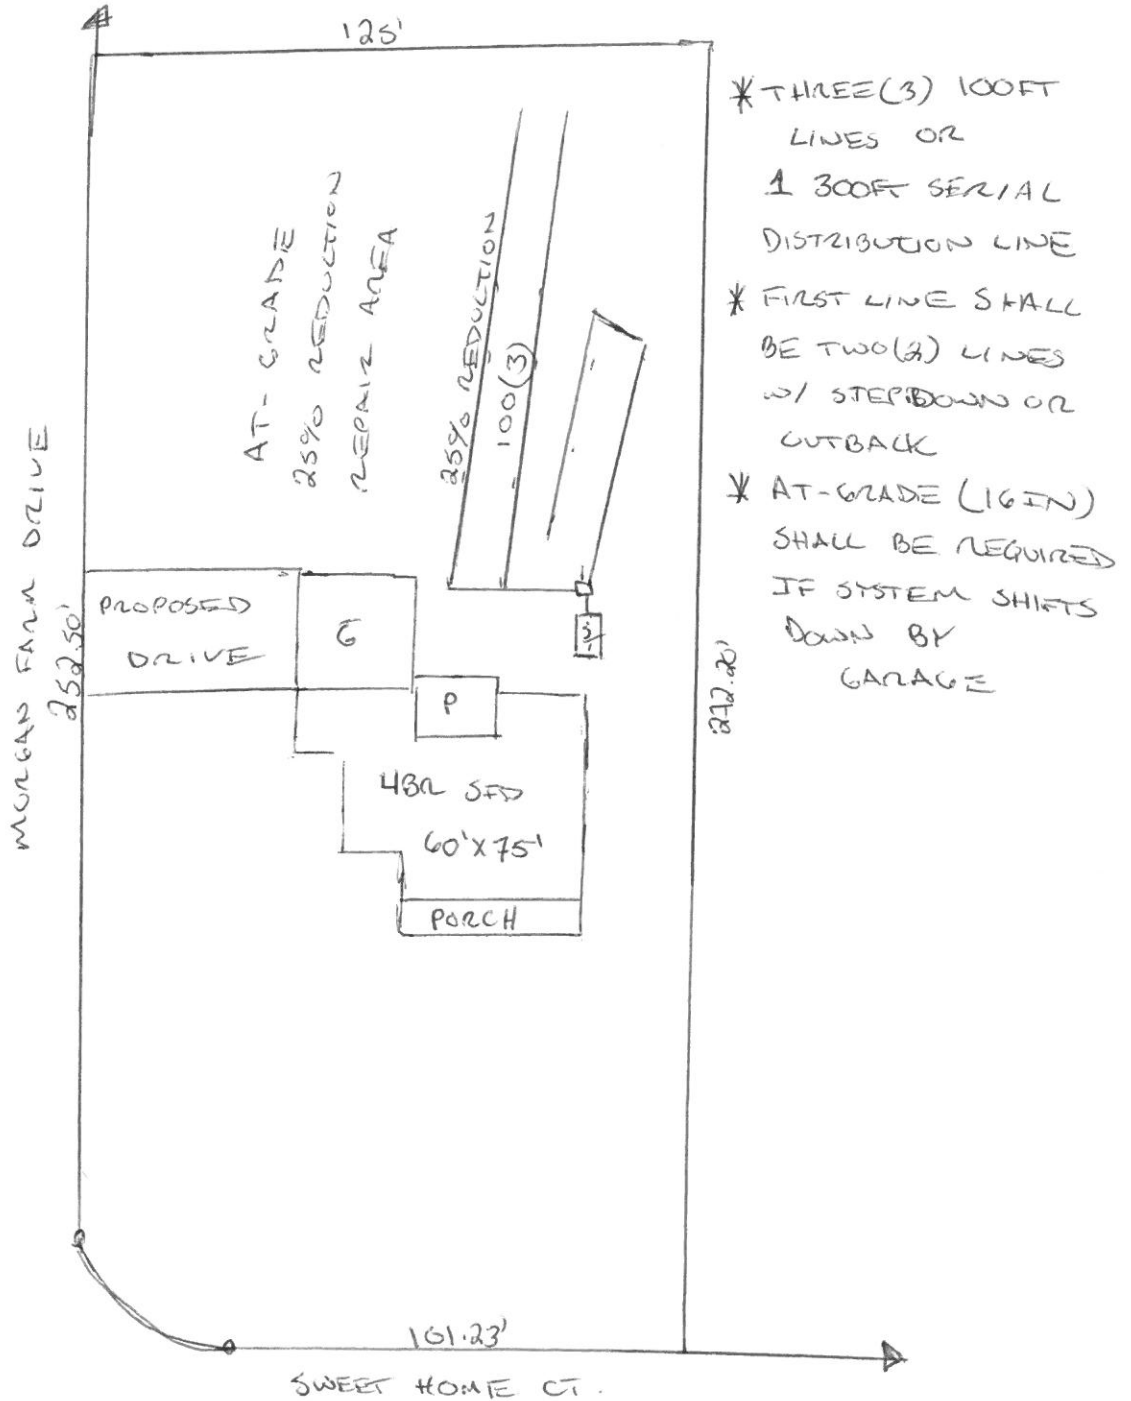 125'
* THREE(3) 100FT
LINES OR
1 300FT SERIAL
DISTRIBUTION LINE
* FIRST LINE SHALL
BE TWO(2) LINES
W/ STEPDOWN OR
CUTBACK
* AT-GRADE (16IN)
SHALL BE REQUIRED
IF SYSTEM SHIFTS
DOWN BY
GARAGE
AT-GRADE
25% REDUCTION
REPAIR AREA
25% REDUCTION
100(3)
MORGAN FARM DRIVE
252.50'
PROPOSED
DRIVE
G
P
272.20'
4BR SFD
60'X75'
PORCH
101.23'
SWEET HOME CT.